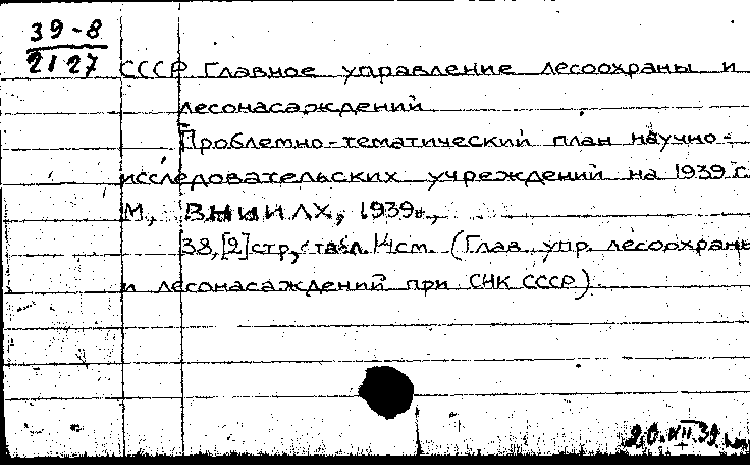 39-8
2127
СССР Главное управление лесоохраны и
лесонасаждений
Проблемно-тематический план научно-
исследовательских учреждений на 1939 г.
М, ВНИИЛХ, 1939г.,
38,[2]стр, табл. 14см. (Глав. упр. лесоохраны
и лесонасаждений при СНК СССР).
20.VII.39